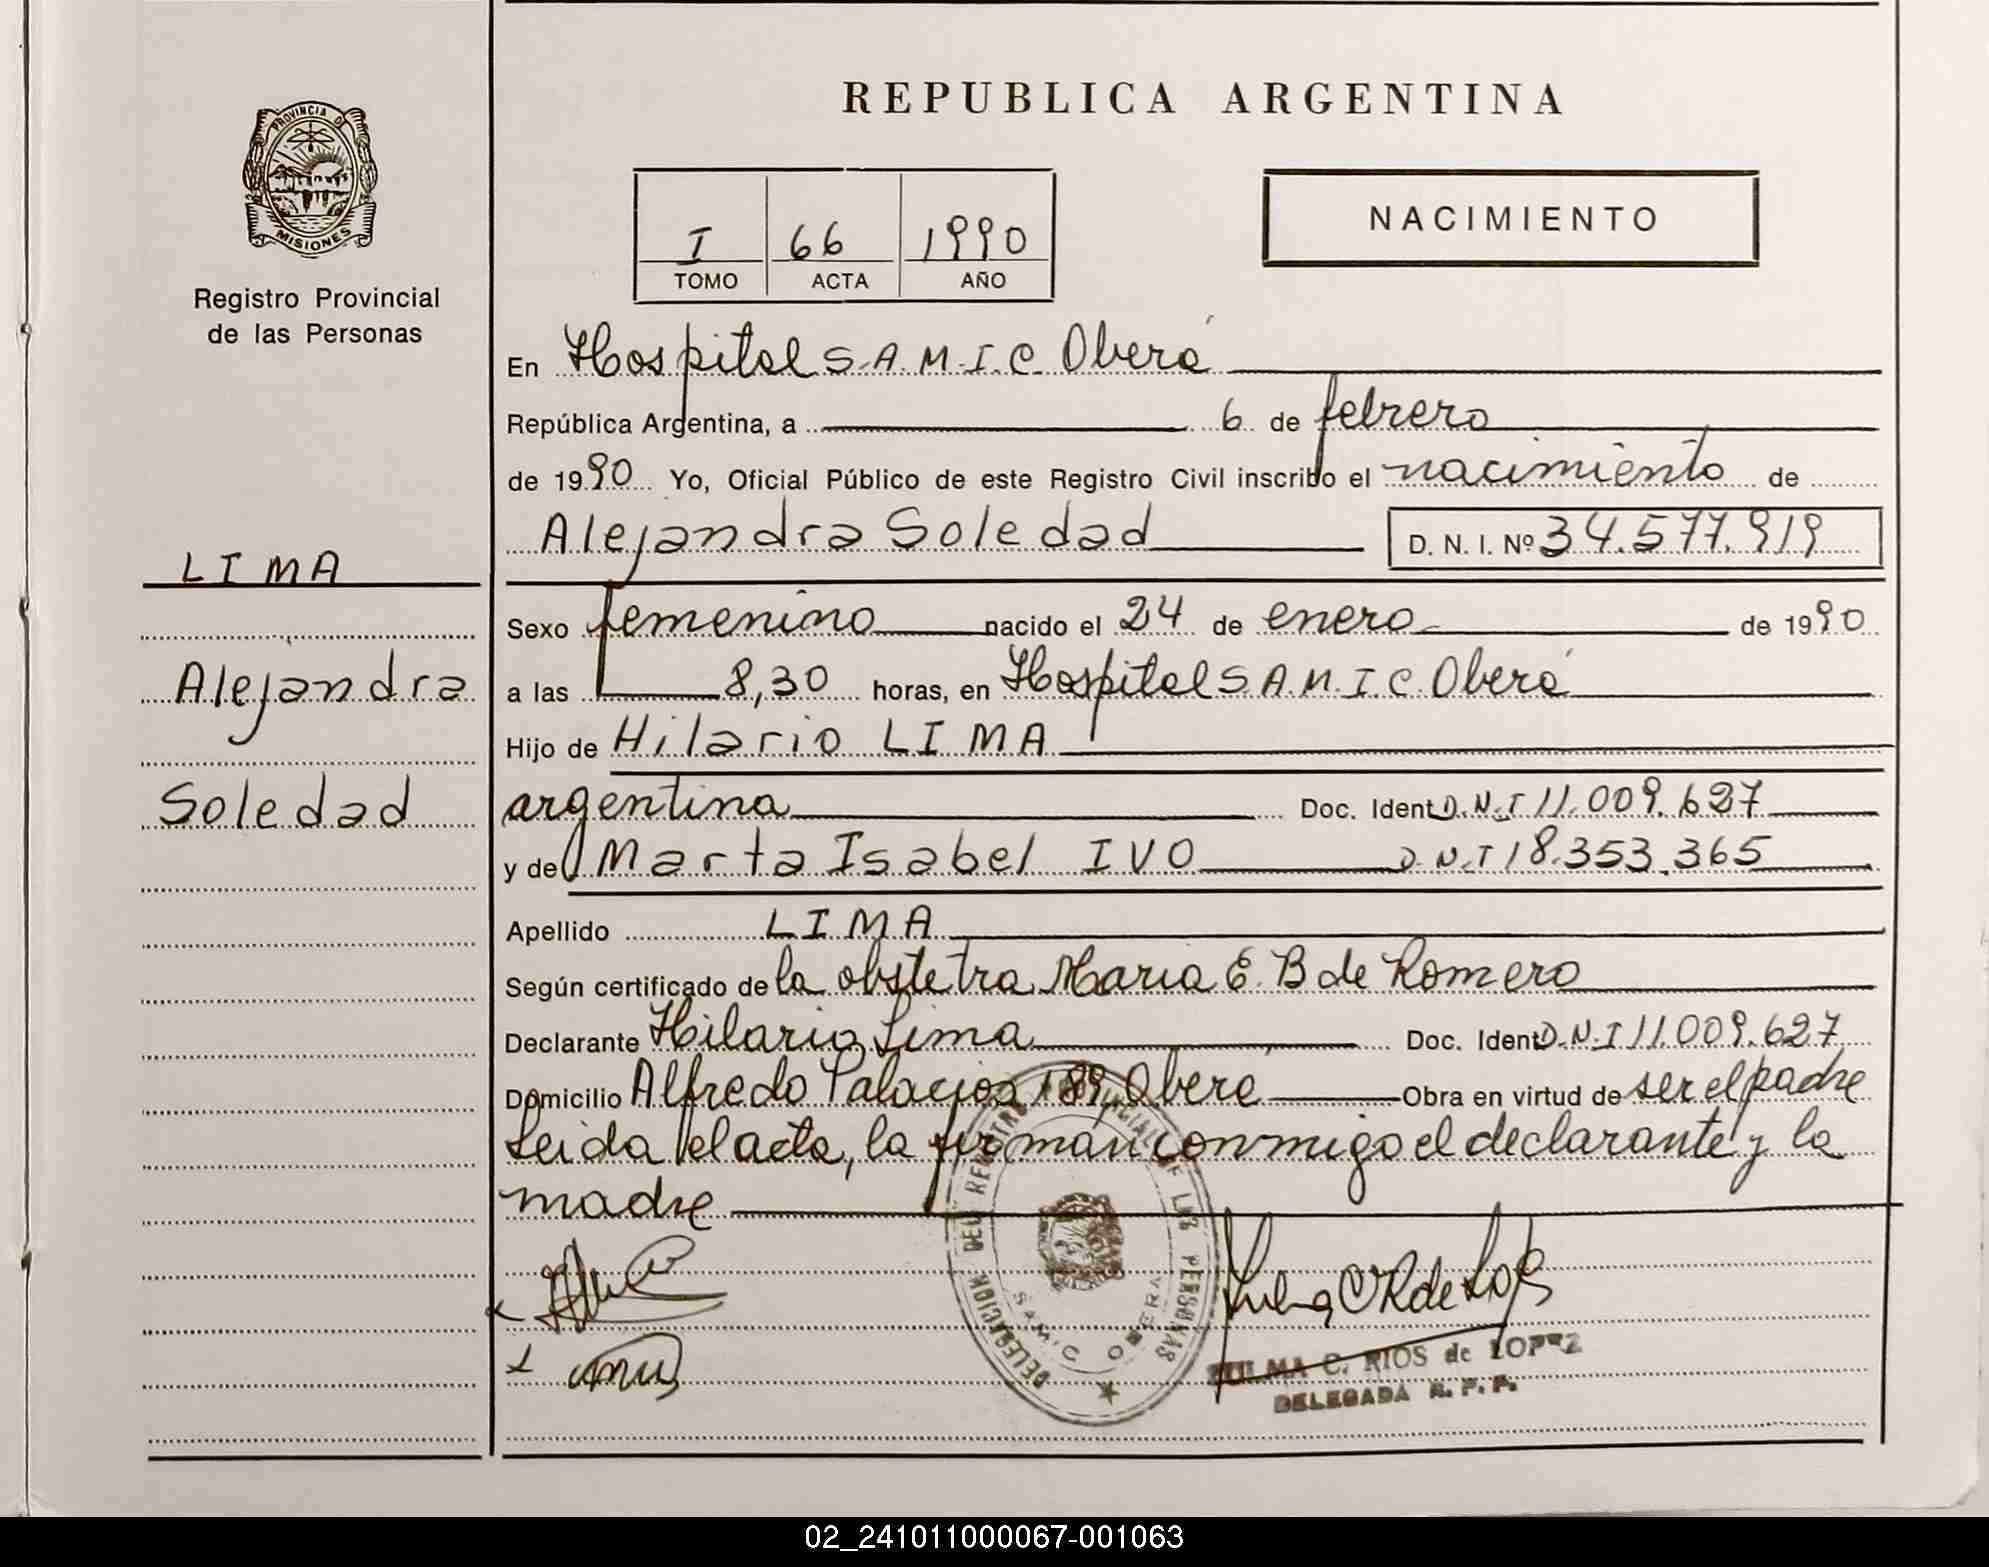 REPUBLICA ARGENTINA
PROVINCIA DE
MISIONES
Registro Provincial
de las Personas
I 66 1990
TOMO ACTA AÑO
NACIMIENTO
En Hospital S.A.M.I.C. Oberá
República Argentina, a 6 de febrero
de 1990 Yo, Oficial Público de este Registro Civil inscribo el nacimiento de
Alejandra Soledad D. N. I. Nº 34.577.919
LIMA
Alejandra
Soledad
Sexo femenino nacido el 24 de enero de 1990
a las 8,30 horas, en Hospital S A M. I C. Oberá
Hijo de Hilario LIMA
argentina Doc. Ident D.N.I 11.009.627
y de Marta Isabel IVO D.N.I 18.353.365
Apellido LIMA
Según certificado de la obstetra Maria E. B de Romero
Declarante Hilario Lima Doc. Ident D.N.I 11.009.627
Domicilio Alfredo Palacios 189, Obera Obra en virtud de ser el padre
Leida el acta, la firman conmigo el declarante y la
madre
DELEGACION DEL REGISTRO PROVINCIAL DE LAS PERSONAS
SAMIC OBERA
ZULMA C. RIOS de LOPEZ
DELEGADA R. P. P.
02_241011000067-001063